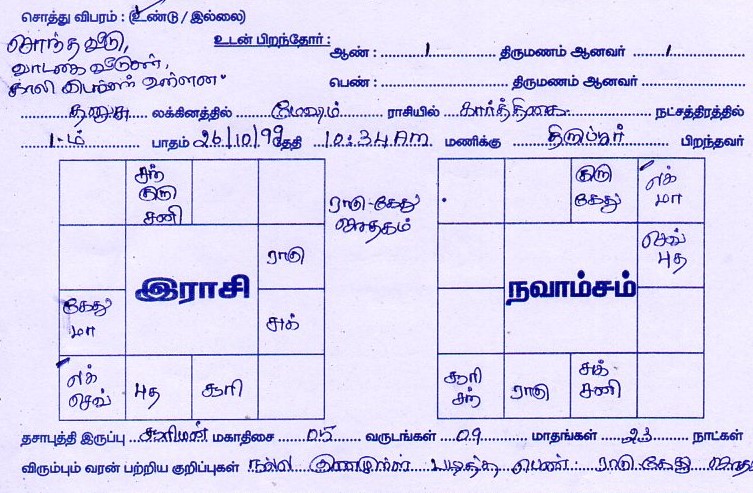 சொத்து விபரம் : (உண்டு / இல்லை)
சொந்த வீடு, உடன் பிறந்தோர் : ஆண் : 1 திருமணம் ஆனவர் 1
வாடகை வீடுகள்,
காலி உள்ளன. பெண் : திருமணம் ஆனவர்
தனுசு லக்கினத்தில் மேஷம் ராசியில் கார்த்திகை நட்சத்திரத்தில்
1-ம் பாதம் 26/10/99 தேதி 10:34 AM மணிக்கு திருப்பூர் பிறந்தவர்
சந்
குரு
சனி
ராகு
கேது
மா
சுக்
லக்
செவ்
புத
சூரி
இராசி
ராகு-கேது
ஜாதகம்
குரு
கேது
லக்
மா
செவ்
புத
நவாம்சம்
சூரி
சந்
ராகு
சுக்
சனி
தசாபுத்தி இருப்பு சூரியன் மகாதிசை 05 வருடங்கள் 09 மாதங்கள் 23 நாட்கள்
விரும்பும் வரன் பற்றிய குறிப்புகள் நல்ல குணமுள்ள படித்த பெண் ராகு-கேது